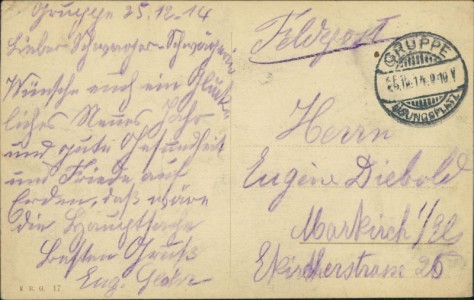 Gruppe 25.12.14
Lieber Schwager-Schwägerin
Wünsche euch ein Glück-
liches Neues Jahr
und gute Gesundheit
und Friede auf
Erden, daß wäre
die Hauptsache
Besten Gruß
Eug.
E.R.G. 17
Feldpost
GRUPPE
ÜBUNGSPLATZ
Herrn
Eugène Diebold
Markirch i/El
Kircherstrasse 26